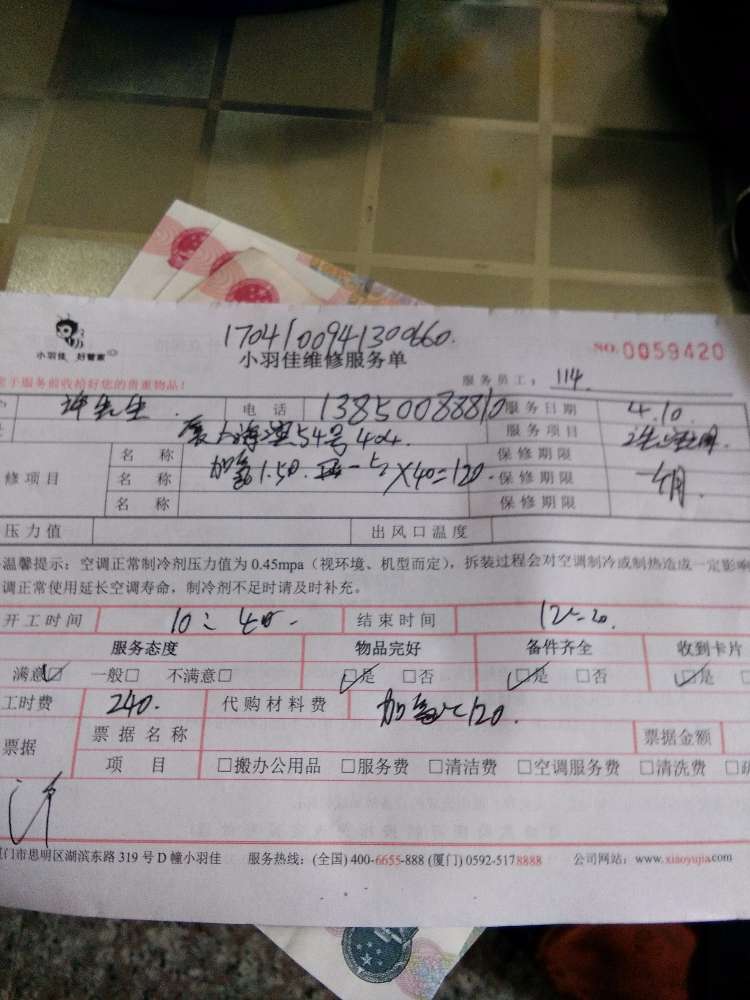 17041009413000660.
小羽佳 好管家
小羽佳维修服务单
NO.0059420
于服务前收拾好您的贵重物品！
服务员工： 114
许先生. 电话 13850088810 服务日期 4.10
54号404. 服务项目
名称 保修期限
修项目 名称 加氟1.50. ×40=120. 保修期限 一个月.
名称 保修期限
压力值 出风口温度
温馨提示：空调正常制冷剂压力值为 0.45mpa（视环境、机型而定），拆装过程会对空调制冷或制热造成一定影响
调正常使用延长空调寿命，制冷剂不足时请及时补充。
开工时间 10：40 结束时间 12：20.
服务态度 物品完好 备件齐全 收到卡片
满意☑ 一般□ 不满意□ ☑是 □否 ☑是 □否 ☑是
工时费 240. 代购材料费 加氟：120.
票据 票据名称 票据金额
项目 □搬办公用品 □服务费 □清洁费 □空调服务费 □清洗费
许
门市思明区湖滨东路 319 号 D 幢小羽佳 服务热线：(全国) 400-6655-888 (厦门) 0592-5178888 公司网站：www.xiaoyujia.com